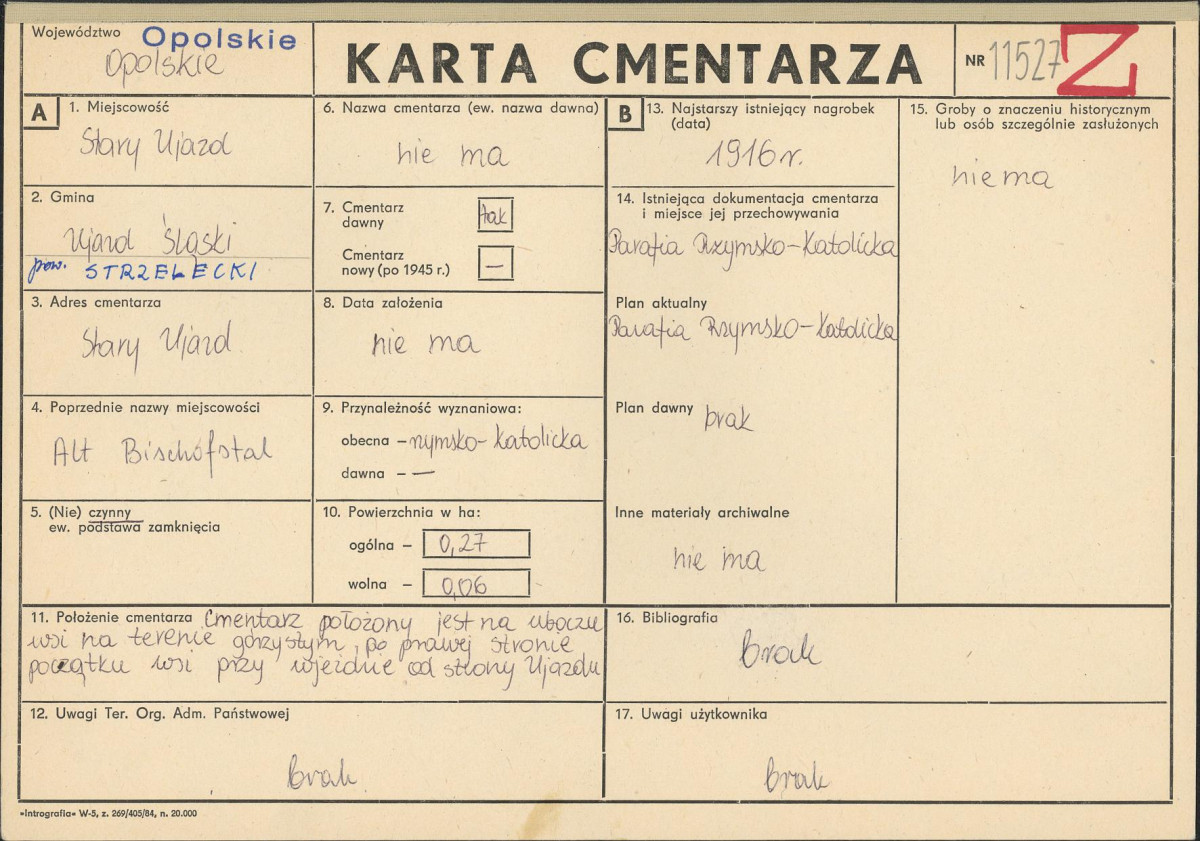 Województwo Opolskie
Opolskie
KARTA CMENTARZA
NR 11527 Z
A
1. Miejscowość
Stary Ujazd
2. Gmina
Ujazd Śląski
pow. STRZELECKI
3. Adres cmentarza
Stary Ujazd
4. Poprzednie nazwy miejscowości
Alt Bischofstal
5. (Nie) czynny
ew. podstawa zamknięcia
6. Nazwa cmentarza (ew. nazwa dawna)
nie ma
7. Cmentarz
dawny
tak
Cmentarz
nowy (po 1945 r.)
—
8. Data założenia
nie ma
9. Przynależność wyznaniowa:
obecna – rzymsko-katolicka
dawna – —
10. Powierzchnia w ha:
ogólna – 0,27
wolna – 0,06
11. Położenie cmentarza Cmentarz położony jest na uboczu
wsi na terenie górzystym, po prawej stronie
początku wsi przy wjeździe od strony Ujazdu
12. Uwagi Ter. Org. Adm. Państwowej
Brak
B
13. Najstarszy istniejący nagrobek
(data)
1916 r.
14. Istniejąca dokumentacja cmentarza
i miejsce jej przechowywania
Parafia Rzymsko-Katolicka
Plan aktualny
Parafia Rzymsko-Katolicka
Plan dawny brak
Inne materiały archiwalne
nie ma
15. Groby o znaczeniu historycznym
lub osób szczególnie zasłużonych
nie ma
16. Bibliografia
Brak
17. Uwagi użytkownika
Brak
»Intrografia« W-5, z. 269/405/84, n. 20.000